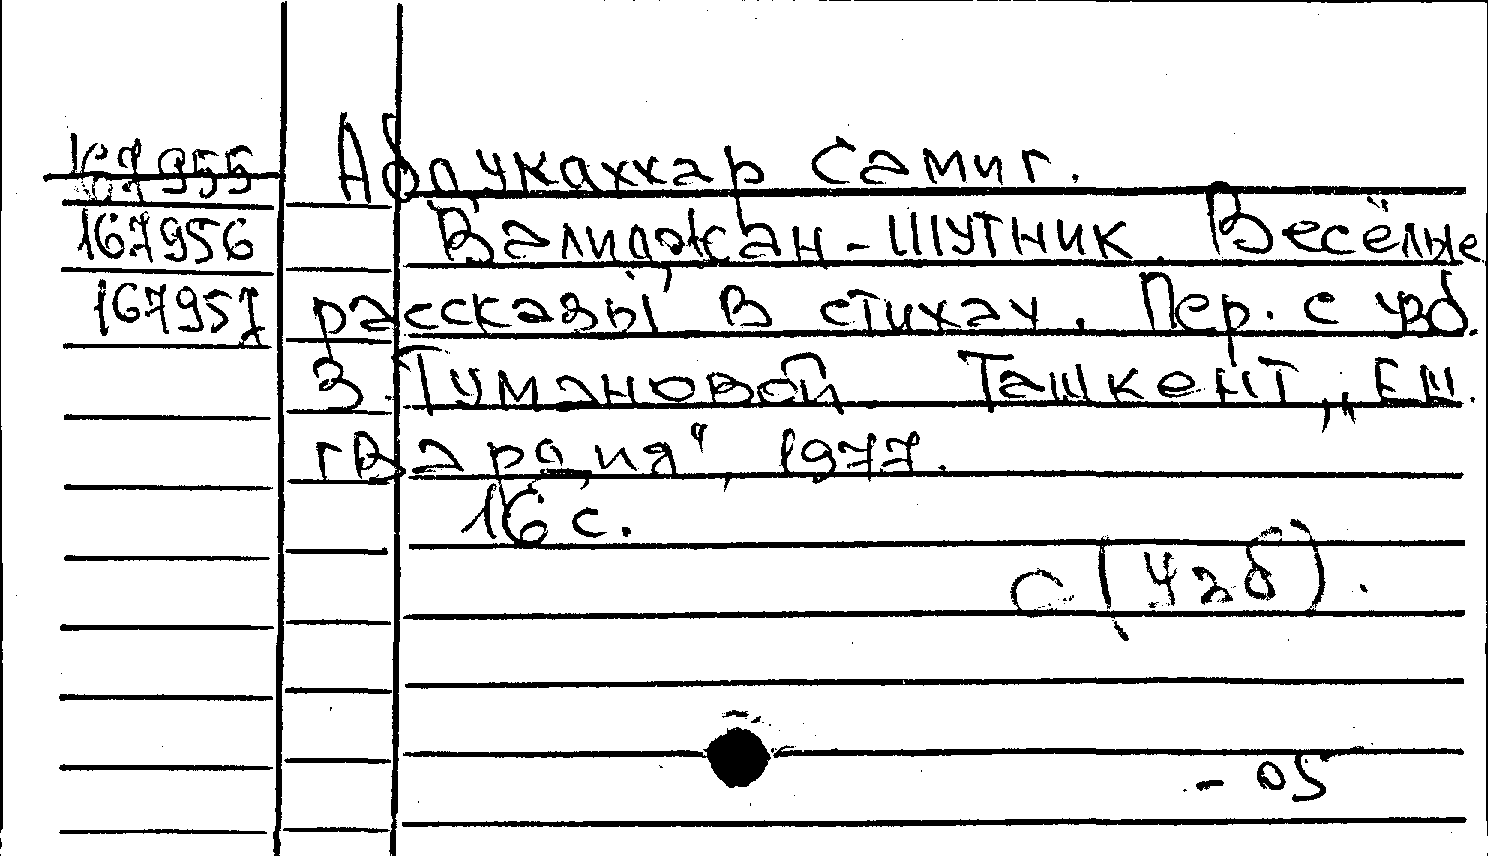 167955 Абдукаххар Самиг.
167956 Валиджан-шутник. Весёлые
167957 рассказы в стихах. Пер. с узб.
З Тумановой Ташкент, „Ёш
гвардия“, 1977.
16 с.
С(Узб).
- 05